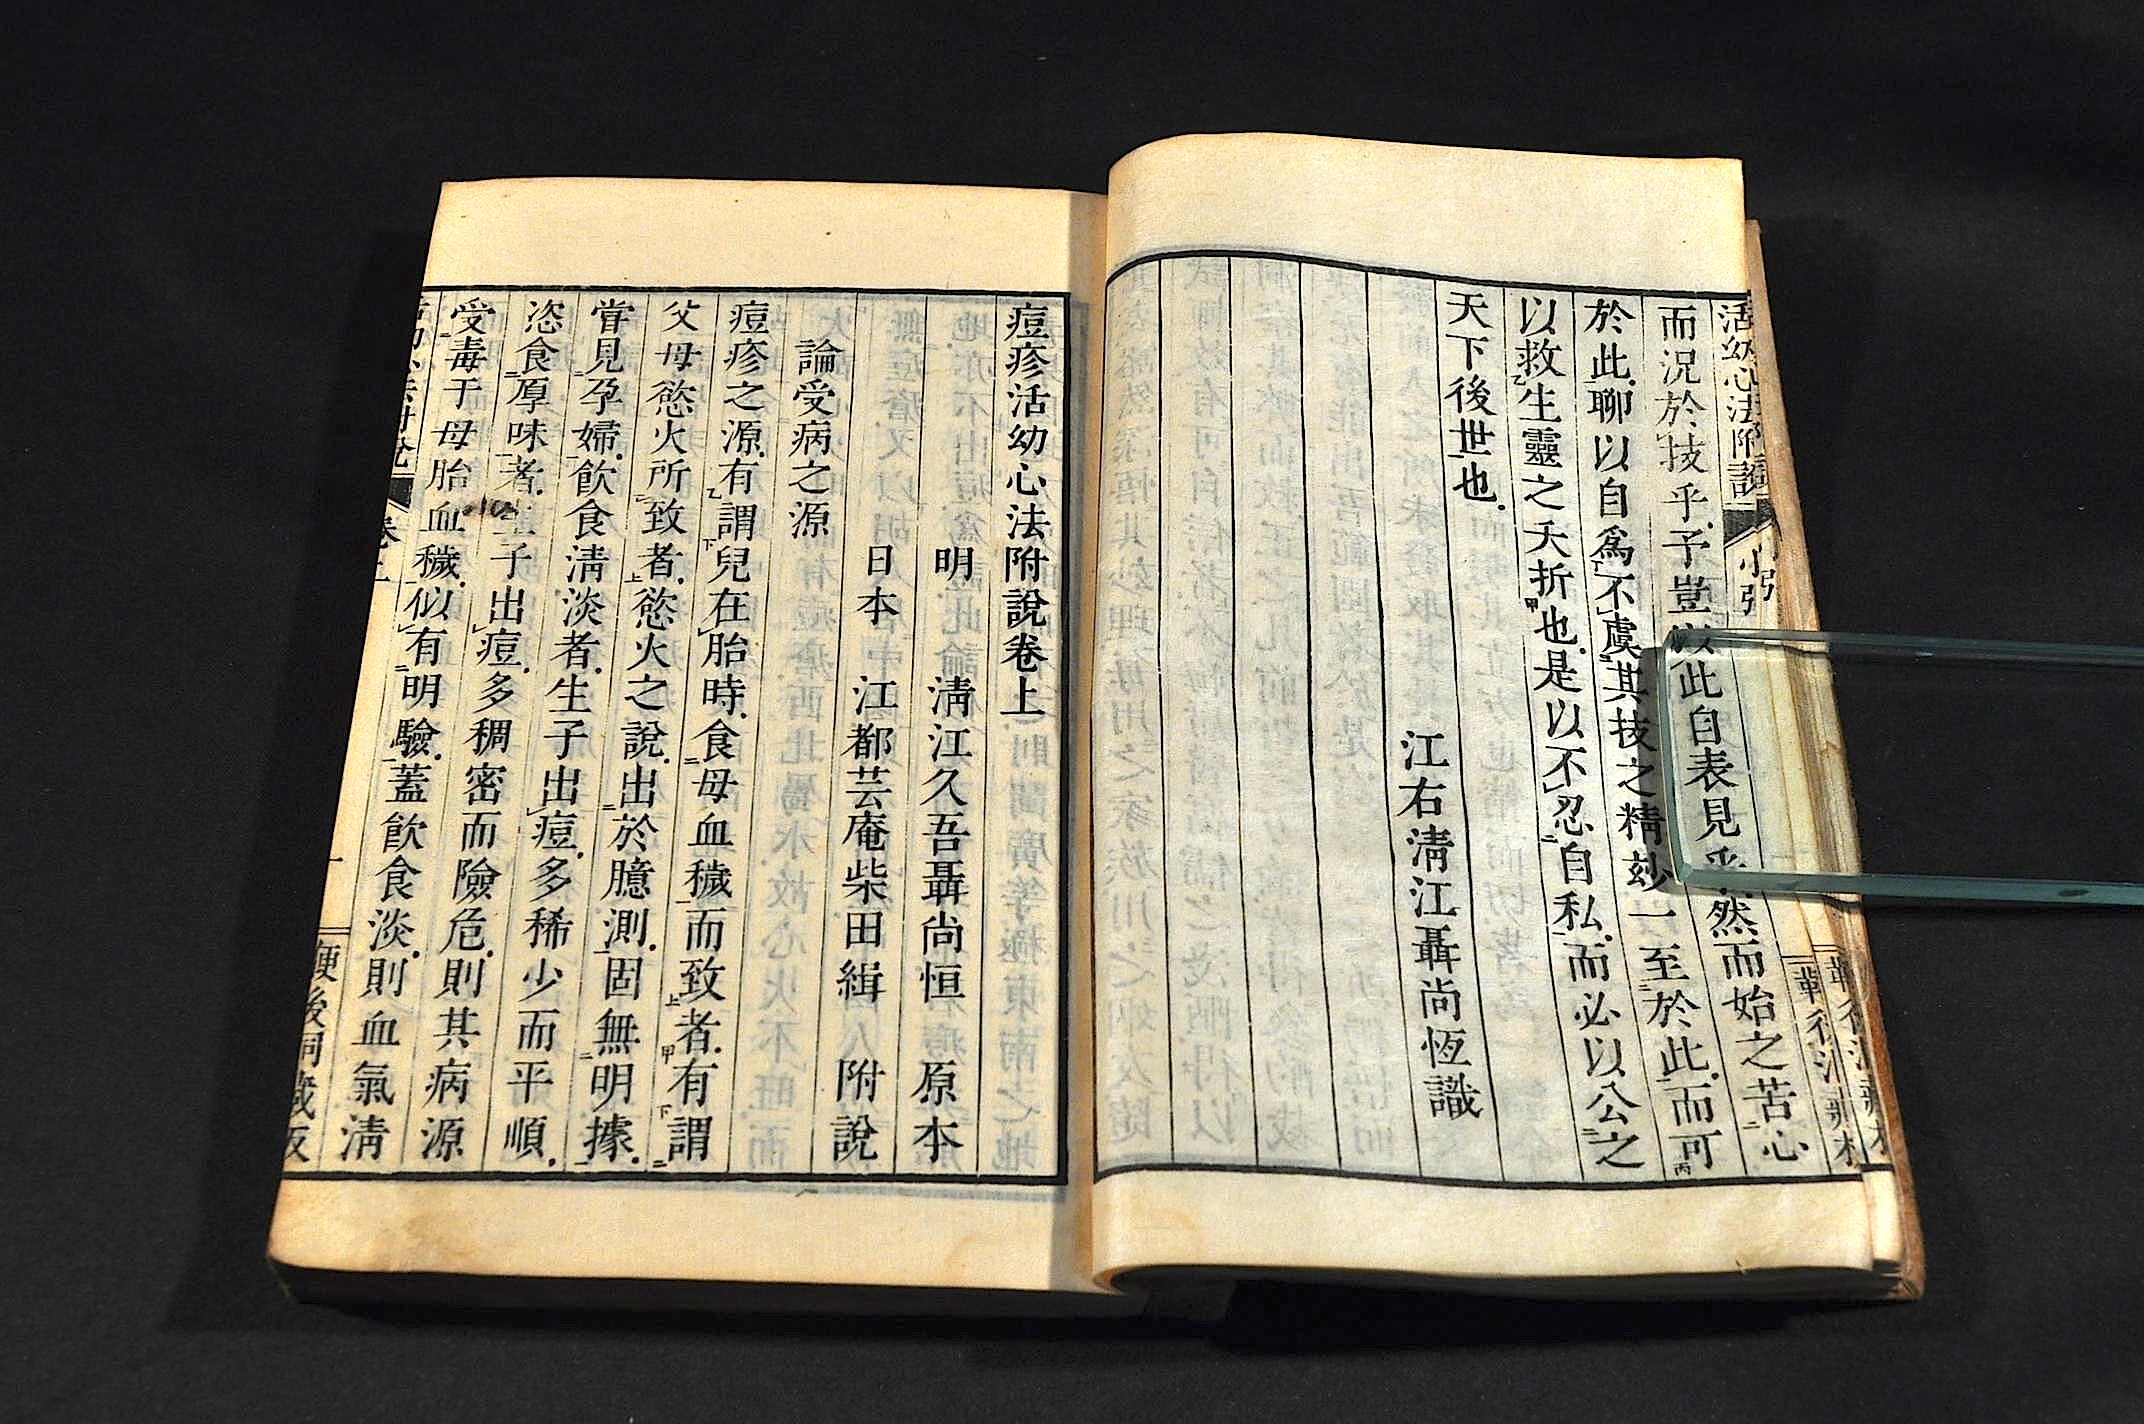 活幼心法附說
小引
而況於技乎予豈以此自表見乎然而始之苦心
於此聊以自爲不虞其技之精玅一至於此而可
以救生靈之夭折也是以不忍自私而必以公之
天下後世也
江右淸江聶尚恆識
痘疹活幼心法附說卷上
明　淸江久吾聶尚恒　原本
日本　江都芸庵柴田緝　附說
論受病之源
痘疹之源有謂兒在胎時食母血穢而致者有謂
父母慾火所致者慾火之說出於臆測固無明據
嘗見孕婦飲食淸淡者生子出痘多稀少而平順
恣食厚味者生子出痘多稠密而險危則其病源
受毒于母胎血穢似有明驗蓋飲食淡則血氣淸